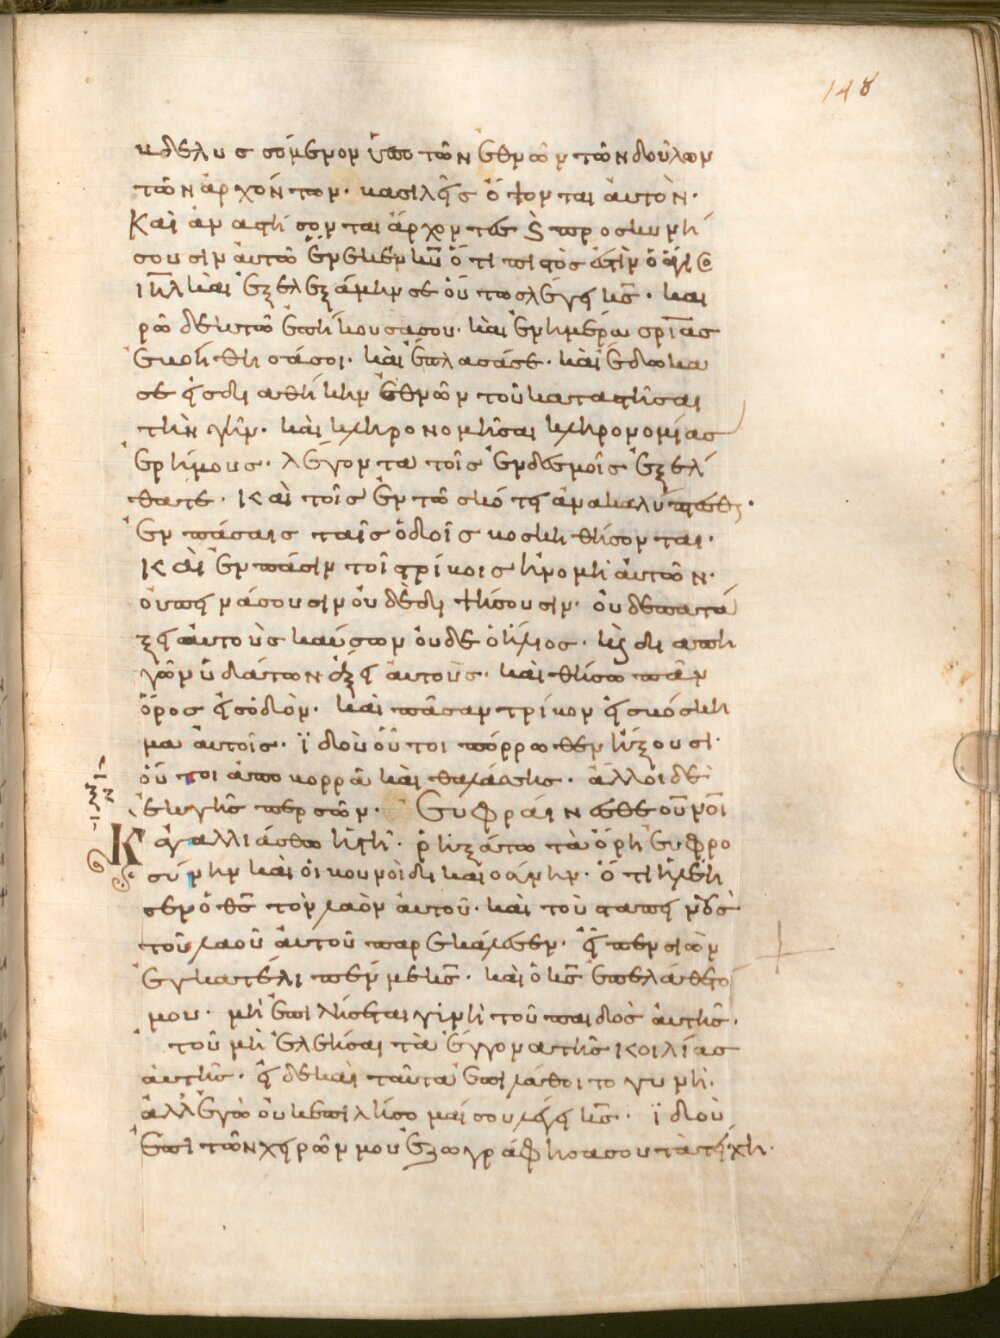 148
βδελυσσόμενον ὑπὸ τῶν ἐθνῶν τῶν δούλων
τῶν ἀρχόντων· βασιλεῖς ὄψονται αὐτὸν·
Καὶ ἀναστήσονται ἄρχοντες ϗ προσκυνή
σουσιν αὐτῶ ἕνεκεν κυ̅ ὅτι πιστός ἐστιν ὁ ἅγιος
ιη̅λ καὶ ἐξελεξάμην σε οὕτως λέγει κς̅· και
ρῶ δεκτῶ ἐπήκουσά σου· καὶ ἐν ἡμέρα σρι̅ας
ἐβοήθησά σοι· καὶ ἔπλασά σε· καὶ ἔδωκα
σε εἰς διαθήκην ἐθνῶν τοῦ καταστῆσαι
τὴν γῆν· καὶ κληρονομῆσαι κληρονομίας
ἐρήμους· λέγοντα τοῖς ἐν δεσμοῖς ἐξελ
θατε· Καὶ τοῖς ἐν τῶ σκότει ἀνακαλύπτεσθαι·
Ἐν πάσαις ταῖς ὁδοῖς βοσκηθήσονται·
Καὶ ἐν πάσιν τοῖ τρίβοις ἡ νομὴ αὐτῶν·
οὐ πεινάσουσιν οὐδὲ διψήσουσιν· οὐδε πατά
ξει αὐτοὺς καύσων οὐδε ὁ ἥλιος· κ διαπη
γῶν ὑδάτων ἄξει αὐτοὺς· καὶ θήσω πᾶν
ὄρος εἰς ὁδὸν· καὶ πᾶσαν τρίβον εἰς βόσκη
μα αὐτοῖς· ϊδοὺ οὗτοι πόρρωθεν ἥξουσι·
οὗτοι ἀπο βορρᾶ καὶ θαλάσσης· ἄλλοι δὲ
ἐκ γῆς περσῶν· Εὐφραίνεσθε οὐνοὶ
Κ ἀγαλλιάσθω ἡ γῆ· ῥηξάτω τὰ ὄρη εὐφρο
σύνην καὶ οἱ βουνοὶ δικαιοσύνην· ὅτι ἠλέη
σεν ὁ θς̅ τὸν λαὸν αὐτοῦ· καὶ τοὺς ταπεινοὺς
τοῦ λαοῦ αὐτοῦ παρεκάλεσεν· εἶπεν σιὼν
ἐγκατέλιπέν με κς̅· καὶ ὁ κς̅ ἐπελάθετό
μου· μὴ ἐπιλήσεται γυνὴ τοῦ παιδὸς αὐτῆς·
τοῦ μὴ ἐλεῆσαι τὰ ἔγγονα τῆς κοιλίας
αὐτῆς· εἰ δε καὶ ταῦτα ἐπιλάθοιτο γυνή·
ἀλλ ἐγὼ οὐκ ἐπιλήσομαί σου λέγει κς̅· ϊδοὺ
ἐπὶ τῶν χειρῶν μου ἐζωγράφησα σου τὰ τείχη·